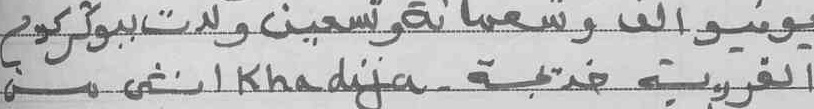 يونيو الف وتسعمائة وتسعين ولدت ببوكركوم
القروية خديجة - Khadija انثى من